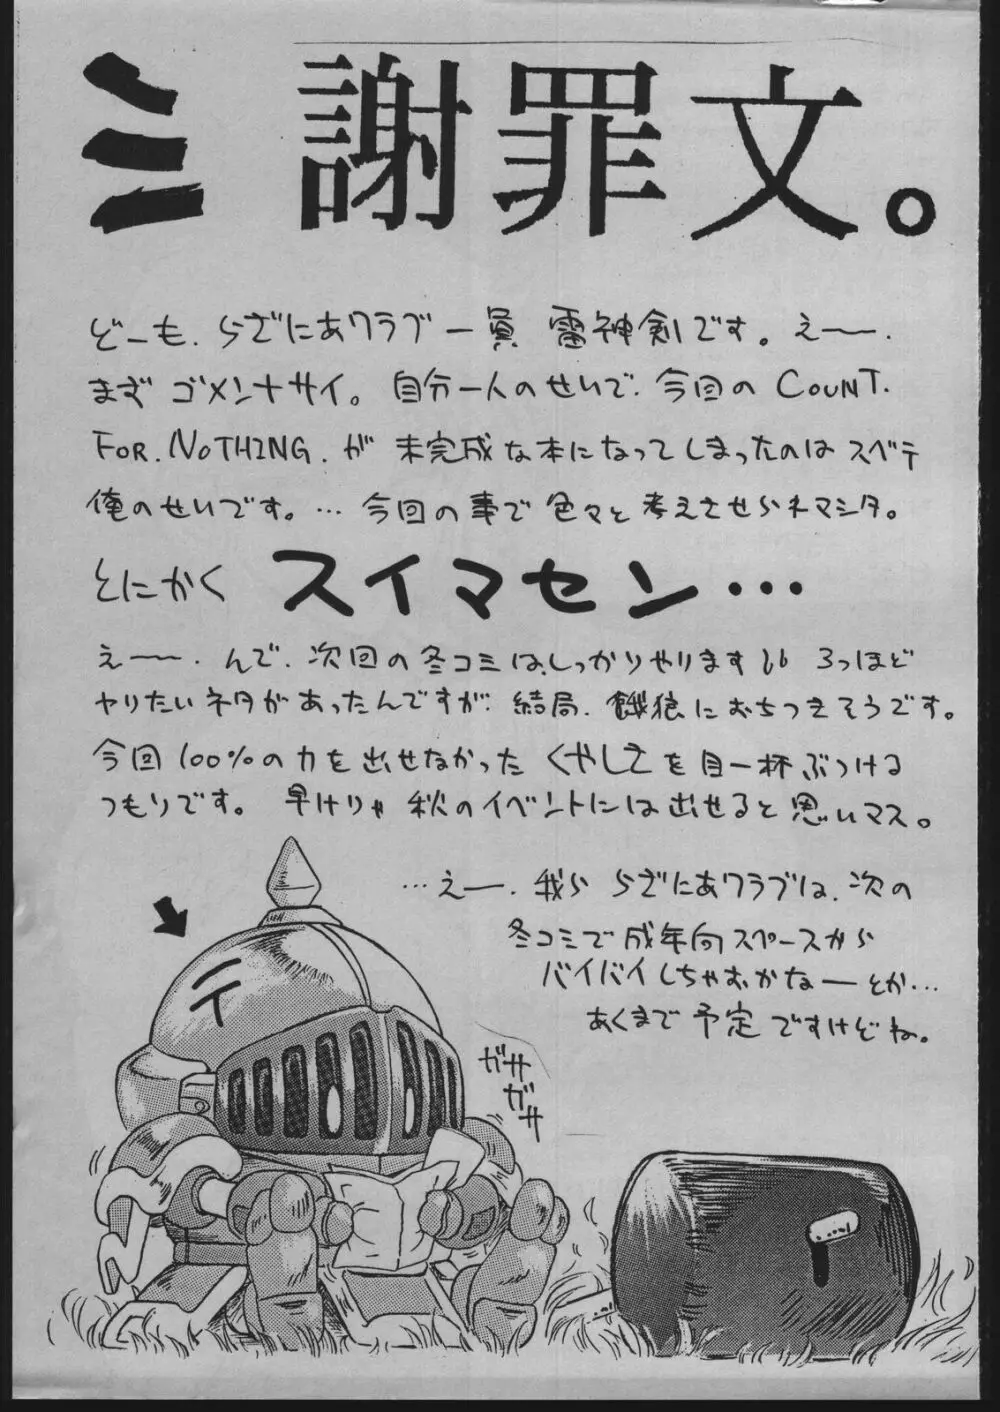 ミ 謝罪文。
どーも、らざにあクラブ一員 雷神剣です。えー、
まず ゴメンナサイ。自分一人のせいで、今回の COUNT.
FOR. NOTHING. が 未完成な本になってしまったのは スベテ
俺のせいです。… 今回の事で色々と 考えさせらネマシタ。
とにかく スイマセン…
えー、んで、次回の冬コミは、しっかりやります!! 3つほど
ヤリたいネタがあったんですが、結局、餓狼におちつきそうです。
今回100%の力を出せなかった くやしさを目一杯ぶつける
つもりです。早けりゃ 秋のイベントには出せると思いマス。
…えー、我ら らざにあクラブは、次の
冬コミで成年向スペースから
バイバイしちゃおかなーとか…
あくまで 予定 ですけどね。
ガサ
ガサ